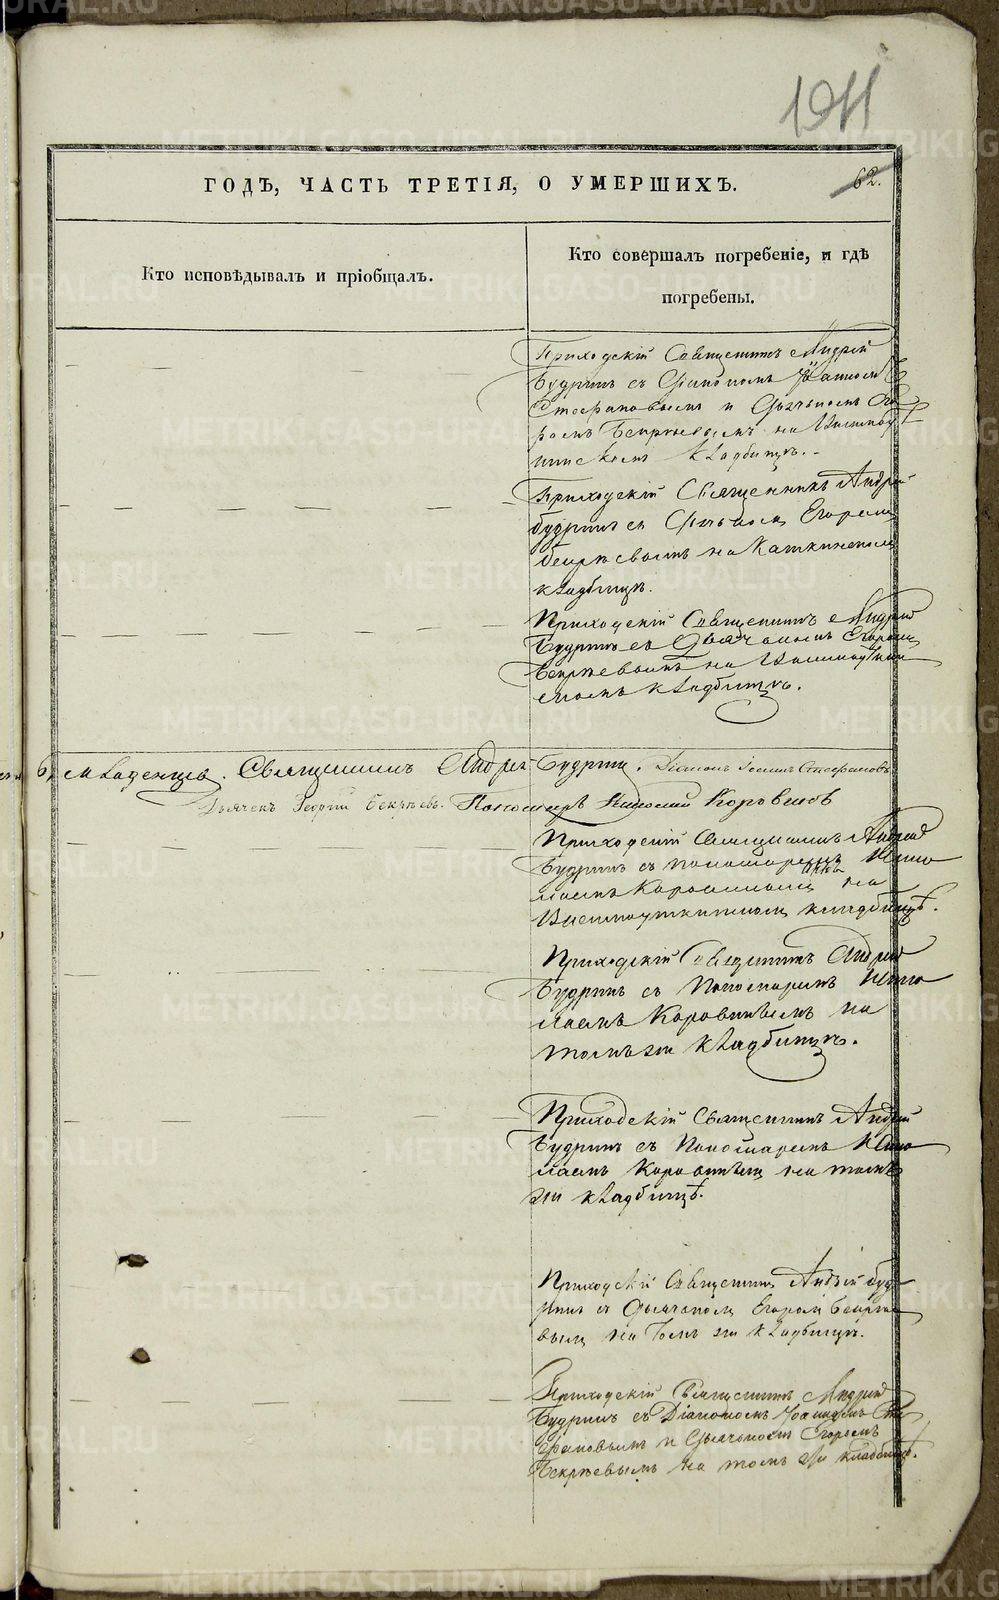 1911
ГОДЪ, ЧАСТЬ ТРЕТІЯ, О УМЕРШИХЪ.
62.
Кто исповѣдывалъ и пріобщалъ.
Кто совершалъ погребеніе, и гдѣ
погребены.
Приходскій Священникъ Андрей
Будринъ съ Діакономъ Іоанномъ
Стефановымъ и Дьячкомъ Его
ромъ Бекрѣевымъ на
кладбищѣ.
Приходскій Священникъ Андрей
Будринъ съ Дьячкомъ Егоромъ
Бекрѣевымъ на
кладбищѣ.
Приходскій Священникъ Андрей
Будринъ съ Дьячкомъ Егоромъ
Бекрѣевымъ на
кладбищѣ.
младенцевъ. Священникъ Андрей Будринъ. Діаконъ Іоаннъ Стефановъ
Дьячекъ Георгій Бекрѣевъ. Пономарь Николай Коровинъ
Приходскій Священникъ Андрей
Будринъ съ пономаремъ Нико
лаемъ на
кладбищѣ.
Приходскій Священникъ Андрей
Будринъ съ Пономаремъ Нико
лаемъ на
томъ же кладбищѣ.
Приходскій Священникъ Андрей
Будринъ съ Пономаремъ Нико
лаемъ на томъ
же кладбищѣ.
Приходскій Священникъ Андрей Буд
ринъ съ Дьячкомъ Егоромъ Бекрѣе
вымъ на томъ же кладбищѣ.
Приходскій Священникъ Андрей
Будринъ съ Діакономъ Іоанномъ Сте
фановымъ и Дьячкомъ Егоромъ
Бекрѣевымъ на томъ же кладбищѣ.
METRIKI.GASO-URAL.RU